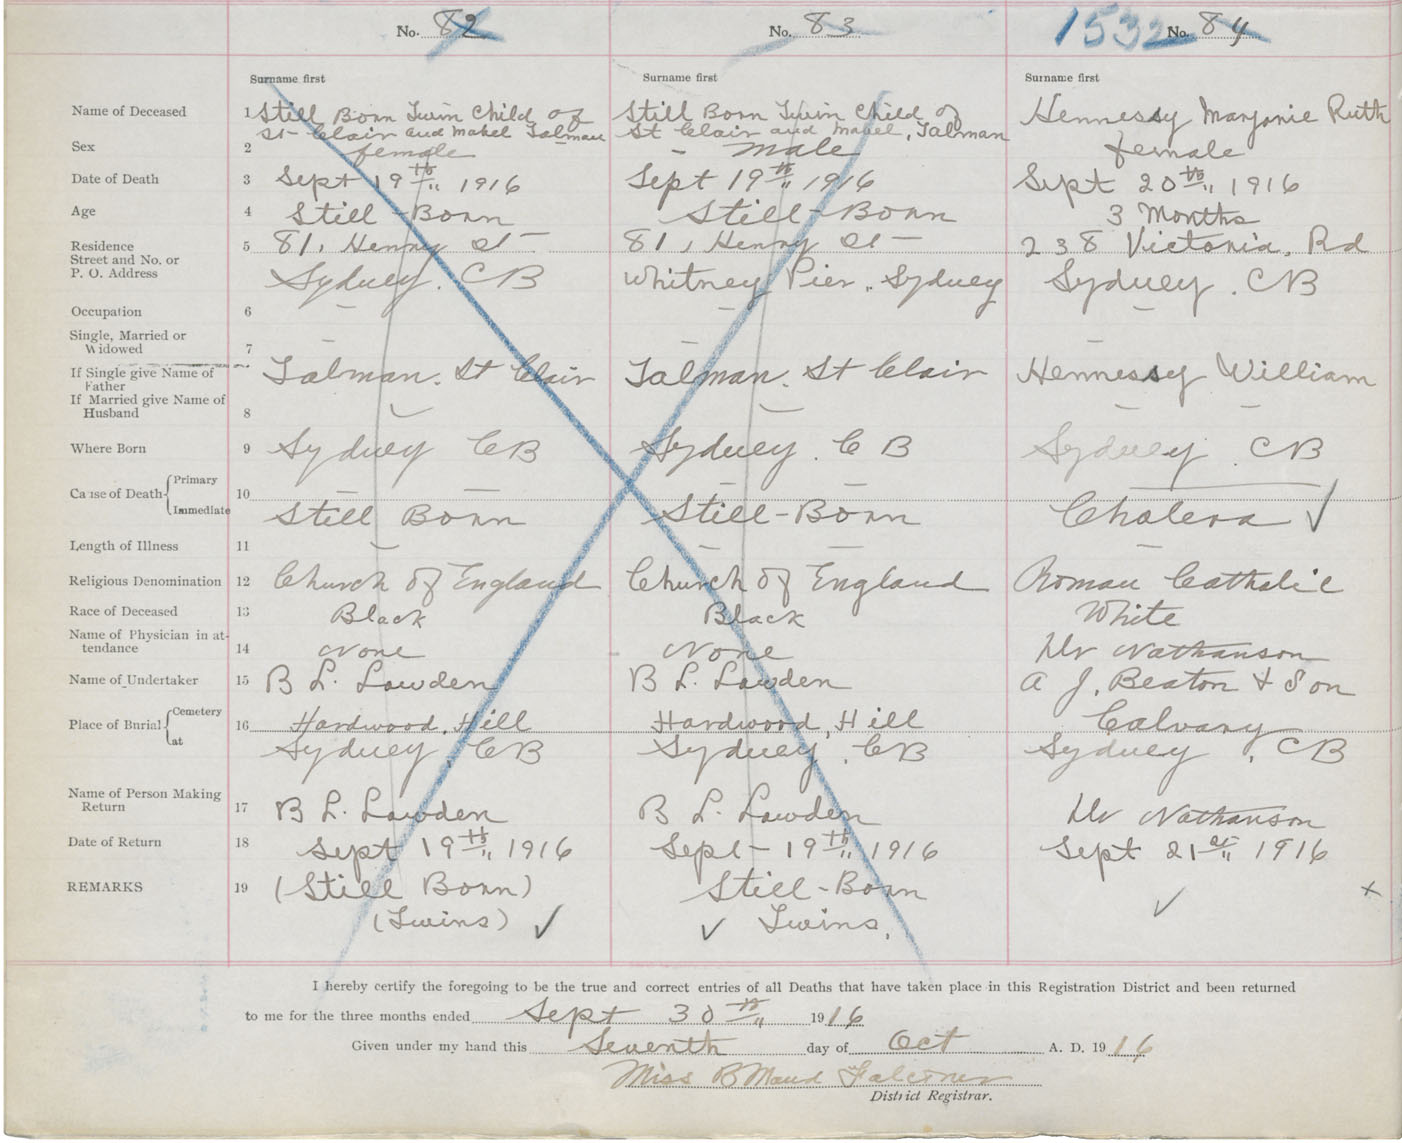 No. 82 No. 83 1532 No. 84
Surname first Surname first Surname first
Name of Deceased 1 Still Born Twin Child of Still Born Twin Child of Hennessy Marjorie Ruth
St Clair and Mabel Talman St Clair and Mabel, Talman
Sex 2 female - male female
Date of Death 3 Sept 19th,, 1916 Sept 19th,, 1916 Sept 20th,, 1916
Age 4 Still-Born Still-Born 3 Months
Residence 5 81, Henry St- 81, Henry St- 238 Victoria. Rd
Street and No. or
P. O. Address Sydney. CB Whitney Pier,. Sydney Sydney. CB
Occupation 6 - - -
Single, Married or
Widowed 7 - - -
If Single give Name of Talman. St Clair Talman. St Clair Hennessy William
Father
If Married give Name of
Husband 8 - -
Where Born 9 Sydney CB Sydney. CB Sydney. CB
Cause of Death Primary 10 - - - -
Immediate Still Born Still-Born Cholera ✓
Length of Illness 11 - - - -
Religious Denomination 12 Church of England Church of England Roman Catholic
Race of Deceased 13 Black Black White
Name of Physician in at-
tendance 14 None - None Dr Nathanson
Name of Undertaker 15 B L. Lowden B L. Lowden A J. Beaton & Son
Place of Burial Cemetery 16 Hardwood, Hill Hardwood, Hill Calvary
at Sydney, CB Sydney, CB Sydney, CB
Name of Person Making
Return 17 B L. Lowden B L. Lowden Dr Nathanson
Date of Return 18 Sept 19th,, 1916 Sept- 19th,, 1916 Sept 21st,, 1916
REMARKS 19 (Still Born) Still-Born ✓ x
(Twins) ✓ ✓ Twins,
I hereby certify the foregoing to be the true and correct entries of all Deaths that have taken place in this Registration District and been returned
to me for the three months ended Sept 30th,, 1916
Given under my hand this Seventh day of Oct A. D. 1916
Miss B Maud Falconer
District Registrar.